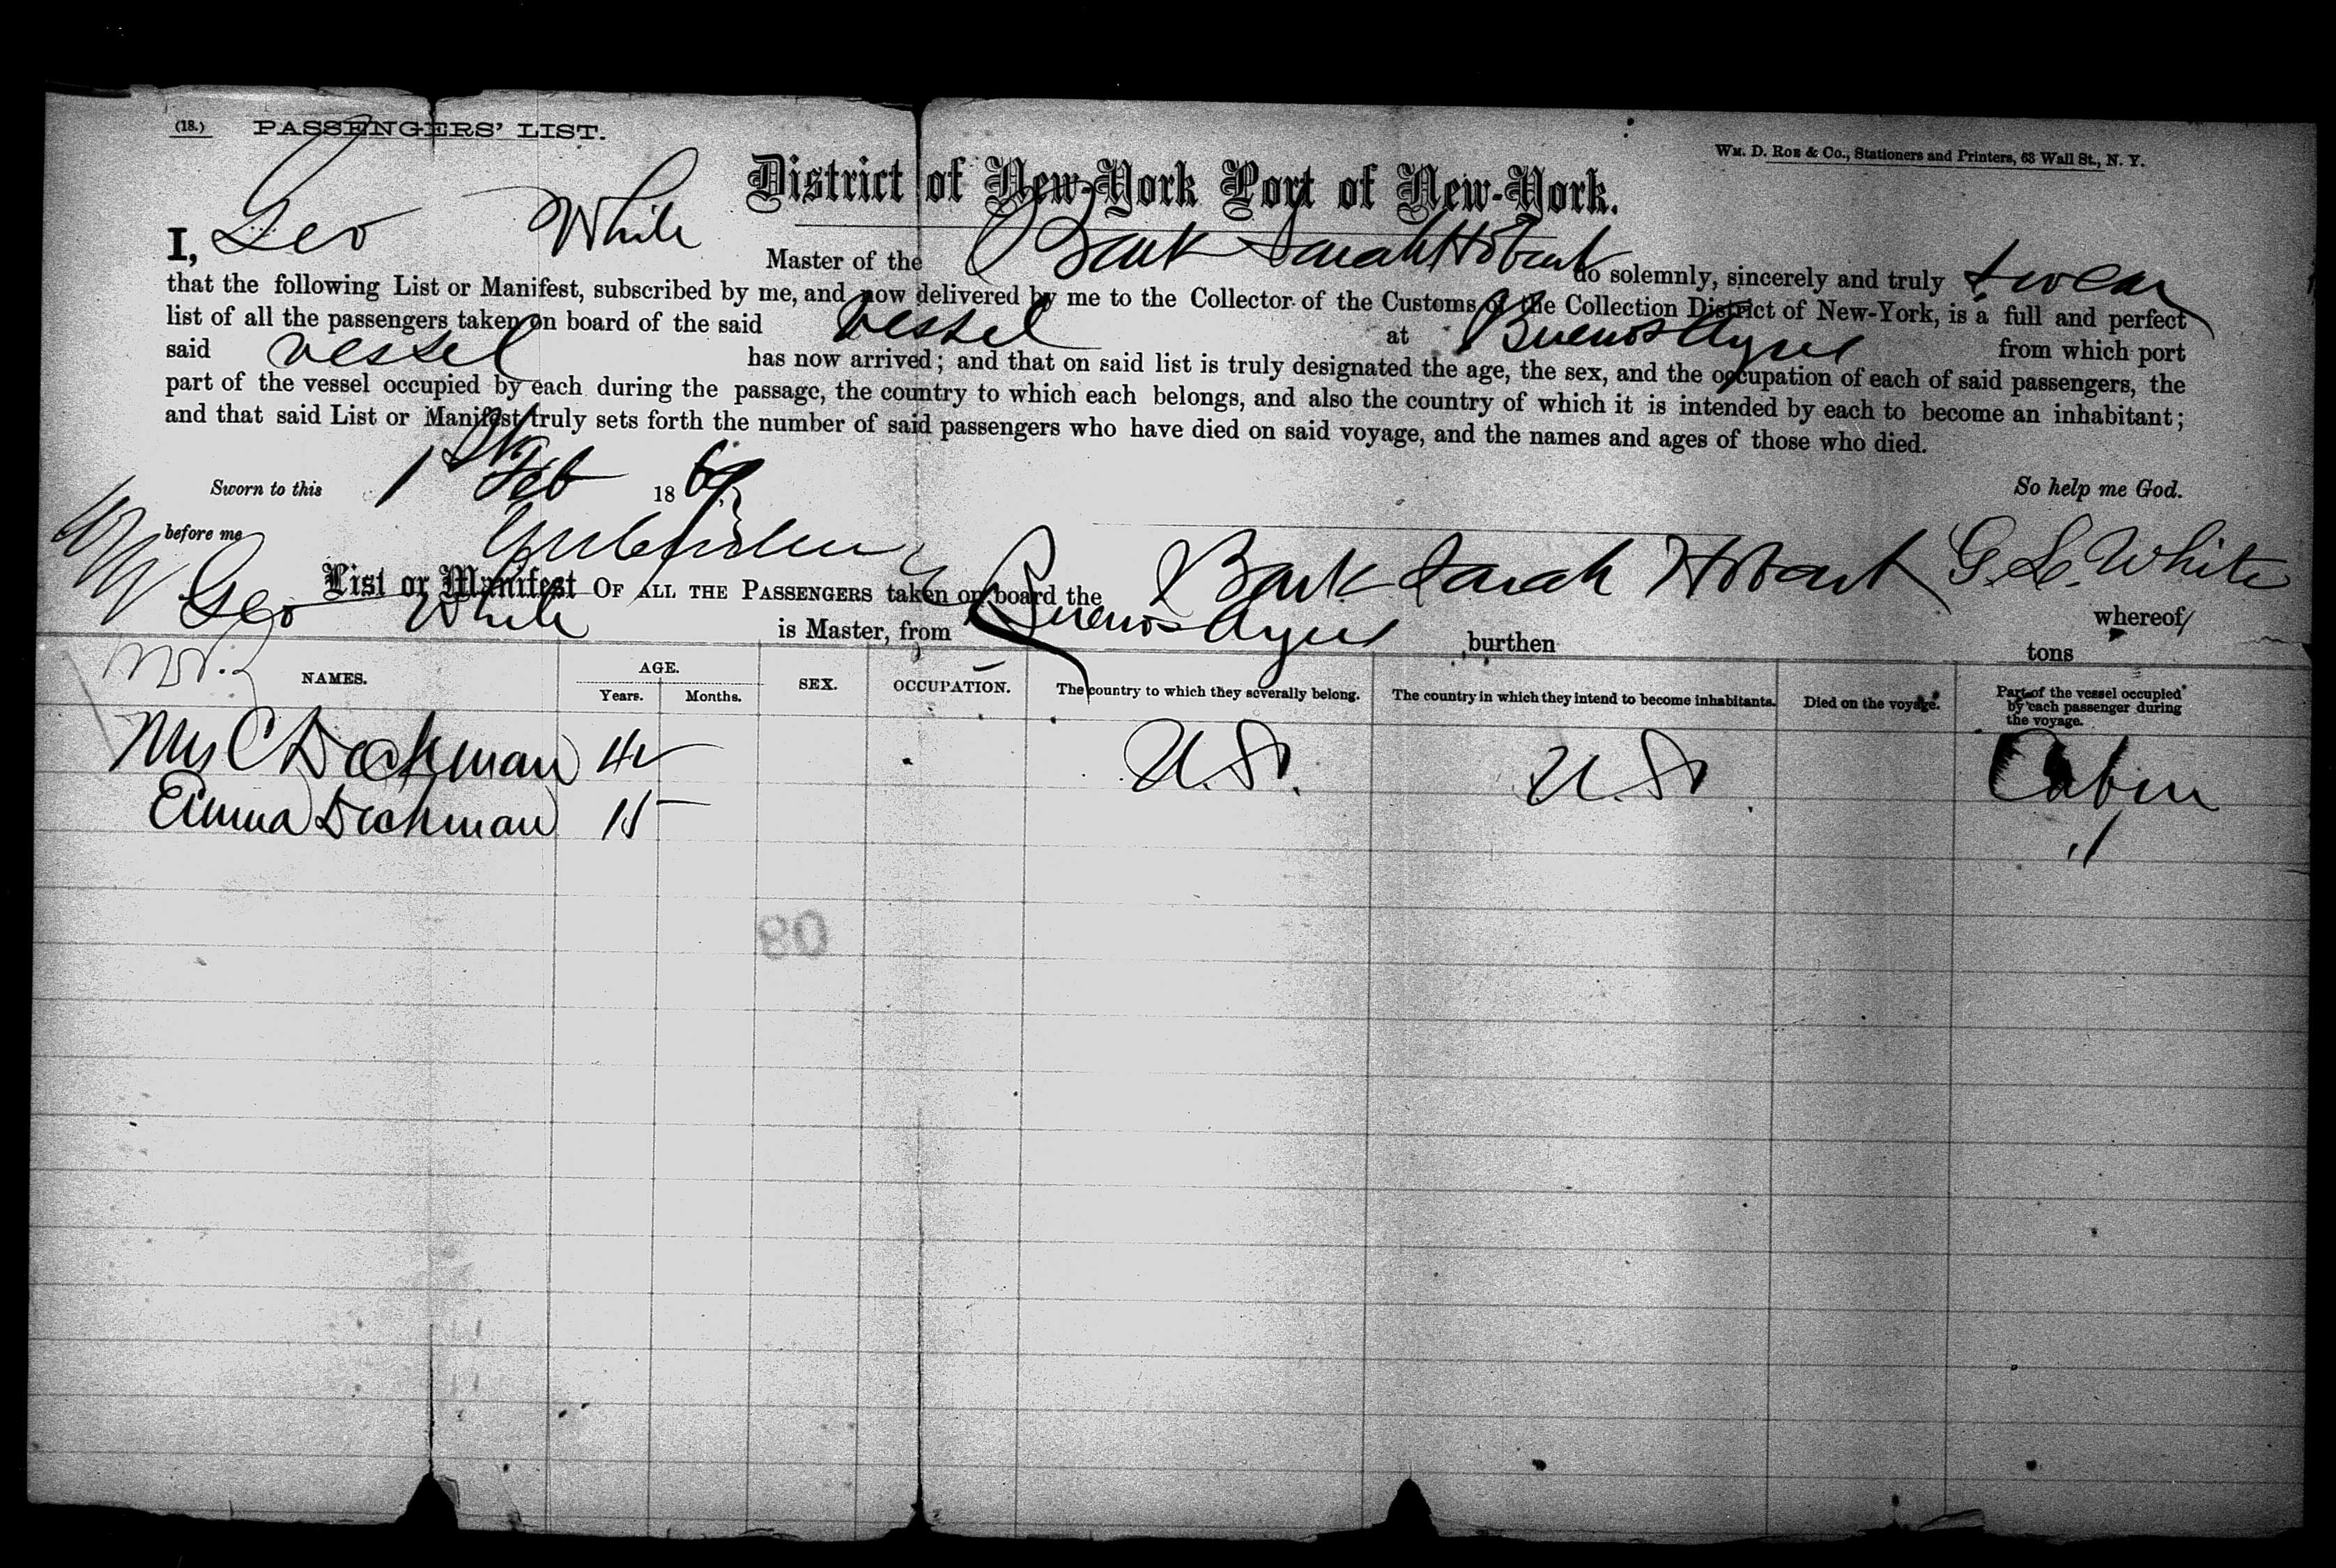 (18.) PASSENGERS' LIST.
Wm. D. Roe & Co., Stationers and Printers, 63 Wall St., N. Y.
District of New-York Port of New-York.
I, Geo White Master of the Bark Sarah Hobart do solemnly, sincerely and truly swear
that the following List or Manifest, subscribed by me, and now delivered by me to the Collector of the Customs of the Collection District of New-York, is a full and perfect
list of all the passengers taken on board of the said Vessel at Buenos Ayres from which port
said vessel has now arrived; and that on said list is truly designated the age, the sex, and the occupation of each of said passengers, the
part of the vessel occupied by each during the passage, the country to which each belongs, and also the country of which it is intended by each to become an inhabitant;
and that said List or Manifest truly sets forth the number of said passengers who have died on said voyage, and the names and ages of those who died.
Sworn to this 1st Feb 1869 So help me God.
before me G. L. White
List or Manifest OF ALL THE PASSENGERS taken on board the Bark Sarah Hobart whereof
Geo White is Master, from Buenos Ayres burthen tons
NAMES. AGE. SEX. OCCUPATION. The country to which they severally belong. The country in which they intend to become inhabitants. Died on the voyage. Part of the vessel occupied by each passenger during the voyage.
Years. Months.
Mrs C Deckman 42 U.S. U.S. Cabin
Emma Deckman 15 "
80